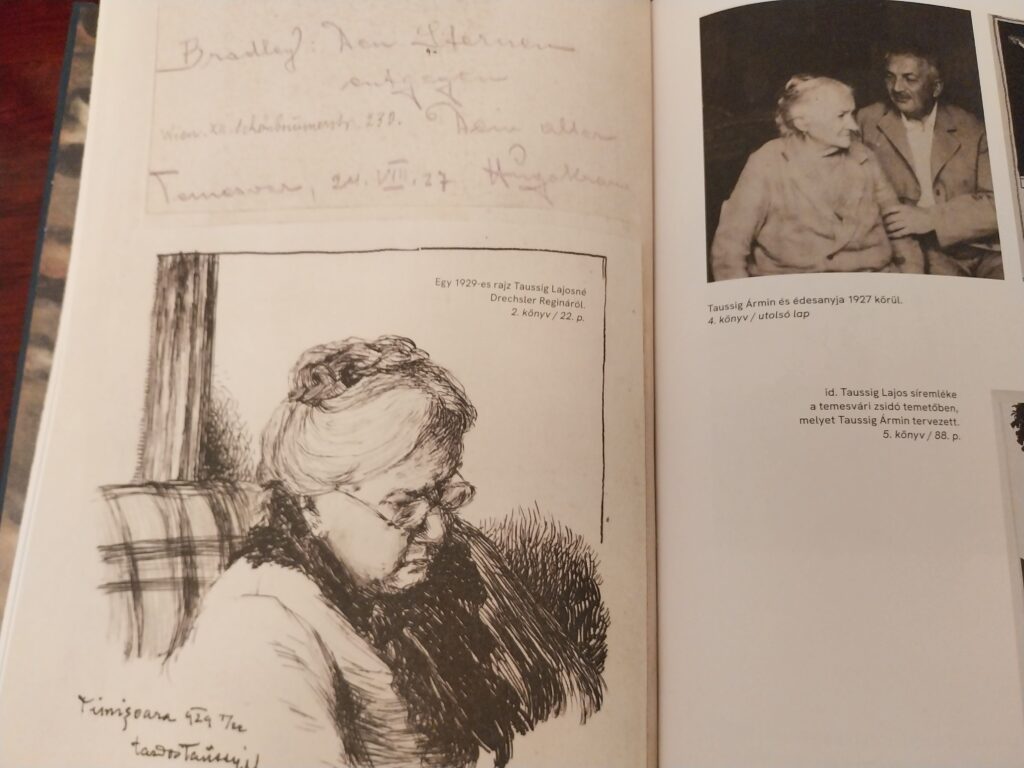 Bradley: Den Sternen
entgegen
Wien. XII. Schönbrunnerstr. 270. Dem alten
Temesvar, 24. VIII. 27
Egy 1929-es rajz Taussig Lajosné
Drechsler Regináról.
2. könyv / 22. p.
Timişoara 929
Taussig Ármin és édesanyja 1927 körül.
4. könyv / utolsó lap
id. Taussig Lajos síremléke
a temesvári zsidó temetőben,
melyet Taussig Ármin tervezett.
5. könyv / 88. p.